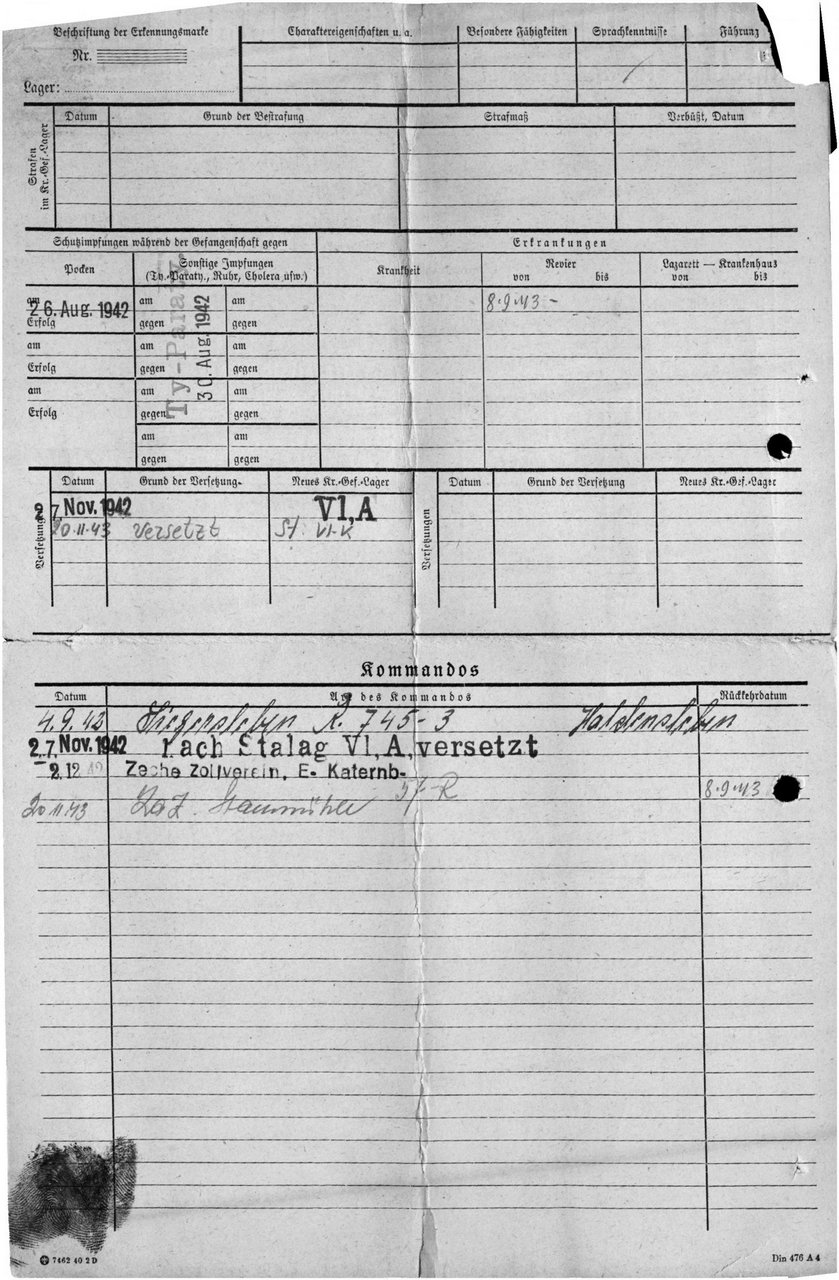 Beschriftung der Erkennungsmarke
Nr.
Lager:
Charaktereigenschaften u. a.
Besondere Fähigkeiten
Sprachkenntnisse
Führung
Strafen im Kr.-Gef.-Lager
Datum
Grund der Bestrafung
Strafmaß
Verbüßt, Datum
Schutzimpfungen während der Gefangenschaft gegen
Erkrankungen
Pocken
Sonstige Impfungen
(Ty.-Paraty., Ruhr, Cholera usw.)
Krankheit
Revier
von bis
Lazarett — Krankenhaus
von bis
am 26. Aug. 1942
Erfolg
am
Erfolg
am
Erfolg
am am
gegen gegen
am am
gegen gegen
am am
gegen gegen
am am
gegen gegen
Ty-Paraty.
30. Aug. 1942
8.9.43 -
Versetzungen
Datum Grund der Versetzung Neues Kr.-Gef.-Lager
27. Nov. 1942 VI,A
20.11.43 versetzt St. VI-K
Versetzungen
Datum Grund der Versetzung Neues Kr.-Gef.-Lager
Kommandos
Datum Art des Kommandos Rückkehrdatum
4.9.42 R. 745-3 Haldensleben
27. Nov. 1942 nach Stalag VI,A, versetzt
2.12.42 Zeche Zollverein, E- Katernb-
8.9.43
20.11.43 Laz. Staumühle
7462 40 2 D
Din 476 A 4